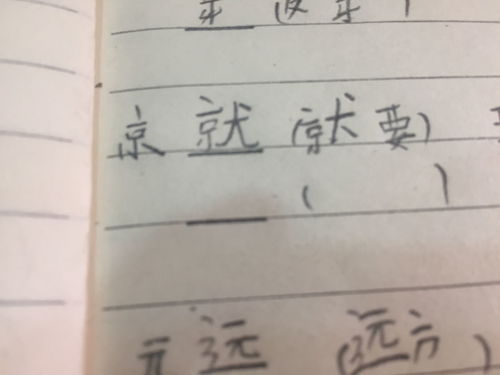 京 就 (就 要)
( )
元 远 (远方)